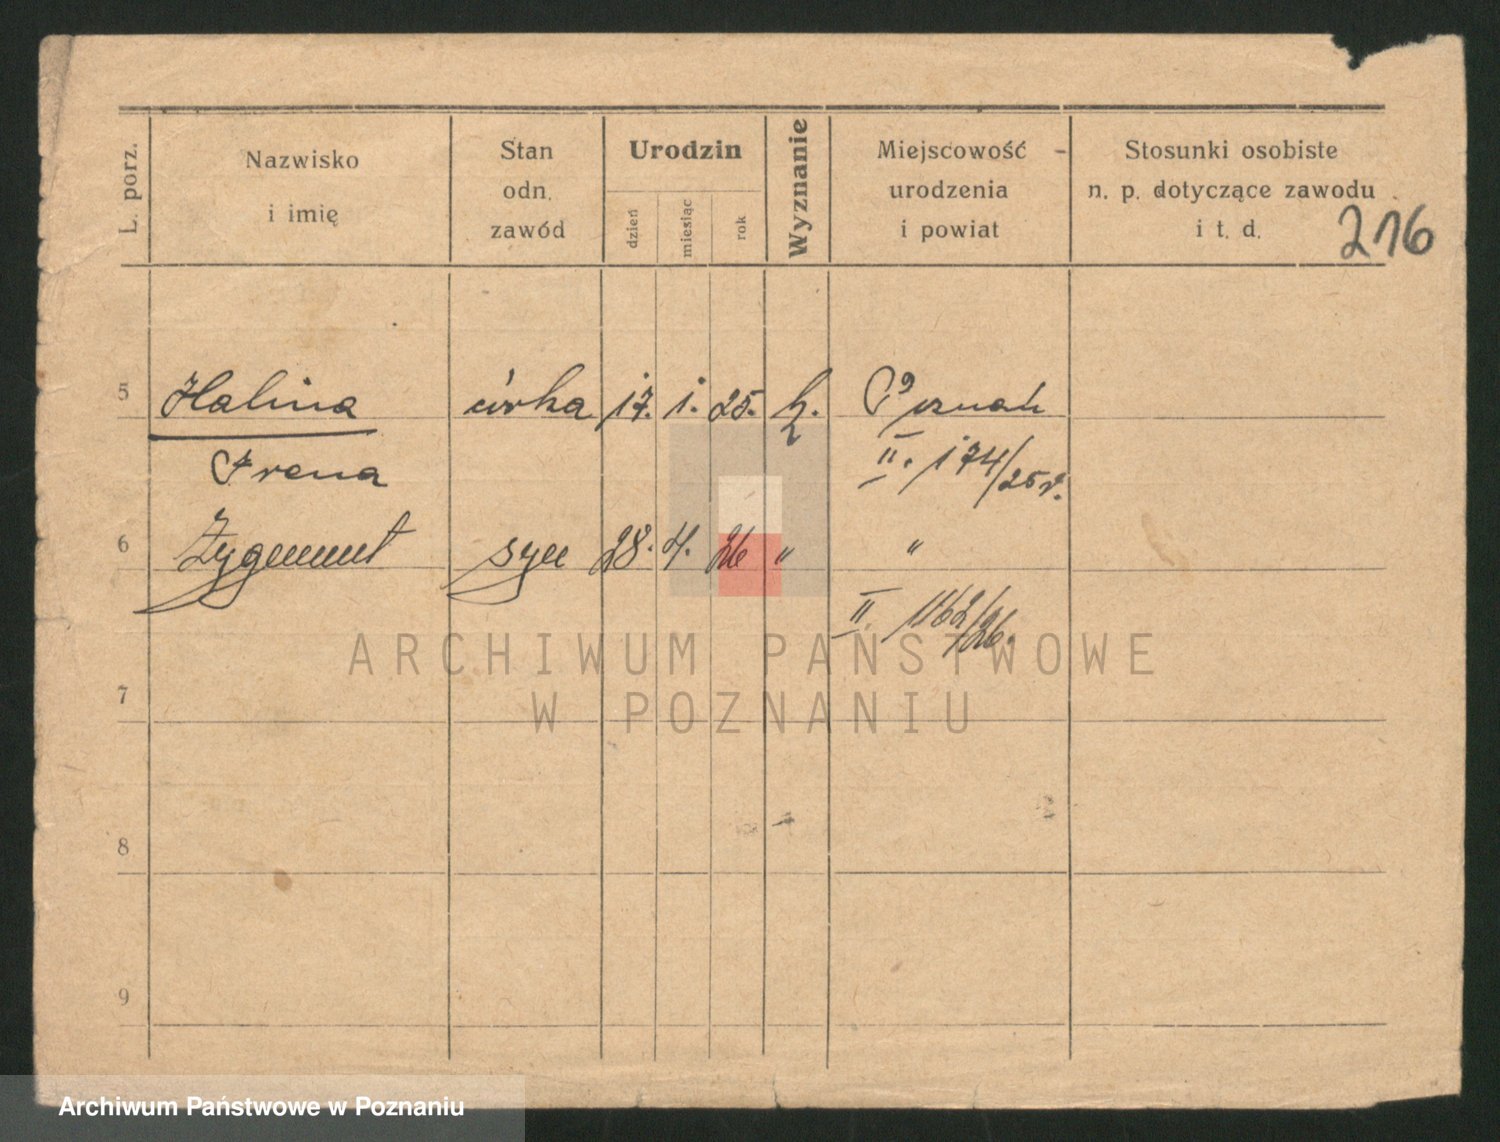 L. porz.
Nazwisko
i imię
Stan
odn.
zawód
Urodzin
dzień
miesiąc
rok
Wyznanie
Miejscowość -
urodzenia
i powiat
Stosunki osobiste
n. p. dotyczące zawodu
i t. d.
216
5 Halina córka 17. 1. 25. Poznań
Irena II. 174/25r.
6 Zygmunt syn 28. 4. 26 " "
II. 1162/26.
ARCHIWUM PAŃSTWOWE
W POZNANIU
7
8
9
Archiwum Państwowe w Poznaniu